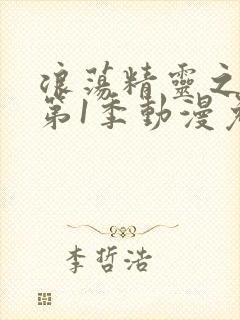 浪蕩精靈之
第1季動漫
李哲浩